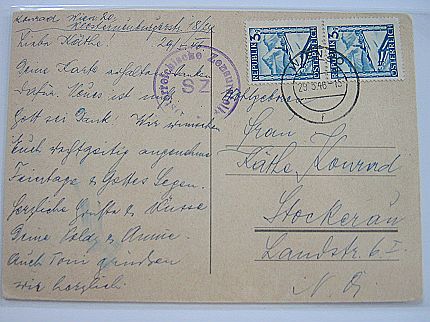 Konrad, Wien 20
Klosterneuburgerstr. 18/31
Liebe Käthe! 29/3. 46
Deine Karte erhalten, danke
dafür. Neues ist nicht
Gott sei Dank! Wir wünschen
Euch rechtzeitig angenehme
Feiertage & Gottes Segen.
Herzliche Grüße & Küsse
Deine & Annie.
Auch Toni grüßen
wir herzlich.
Österreichische Zensurstelle
SZ
REPUBLIK ÖSTERREICH
3
REPUBLIK ÖSTERREICH
3
29.3.46
Frau
Käthe Konrad
Stockerau
Landstr. 6.I.
N. Ö.